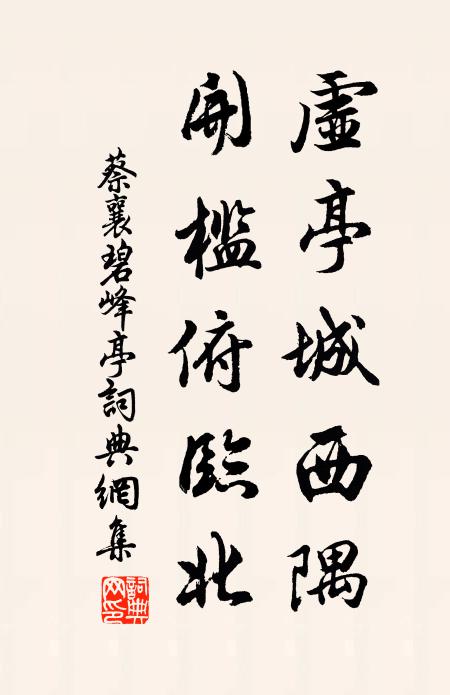 虛亭城西隅
開檻俯臨北
蔡襄碧峰亭詞典網集
詞典网印